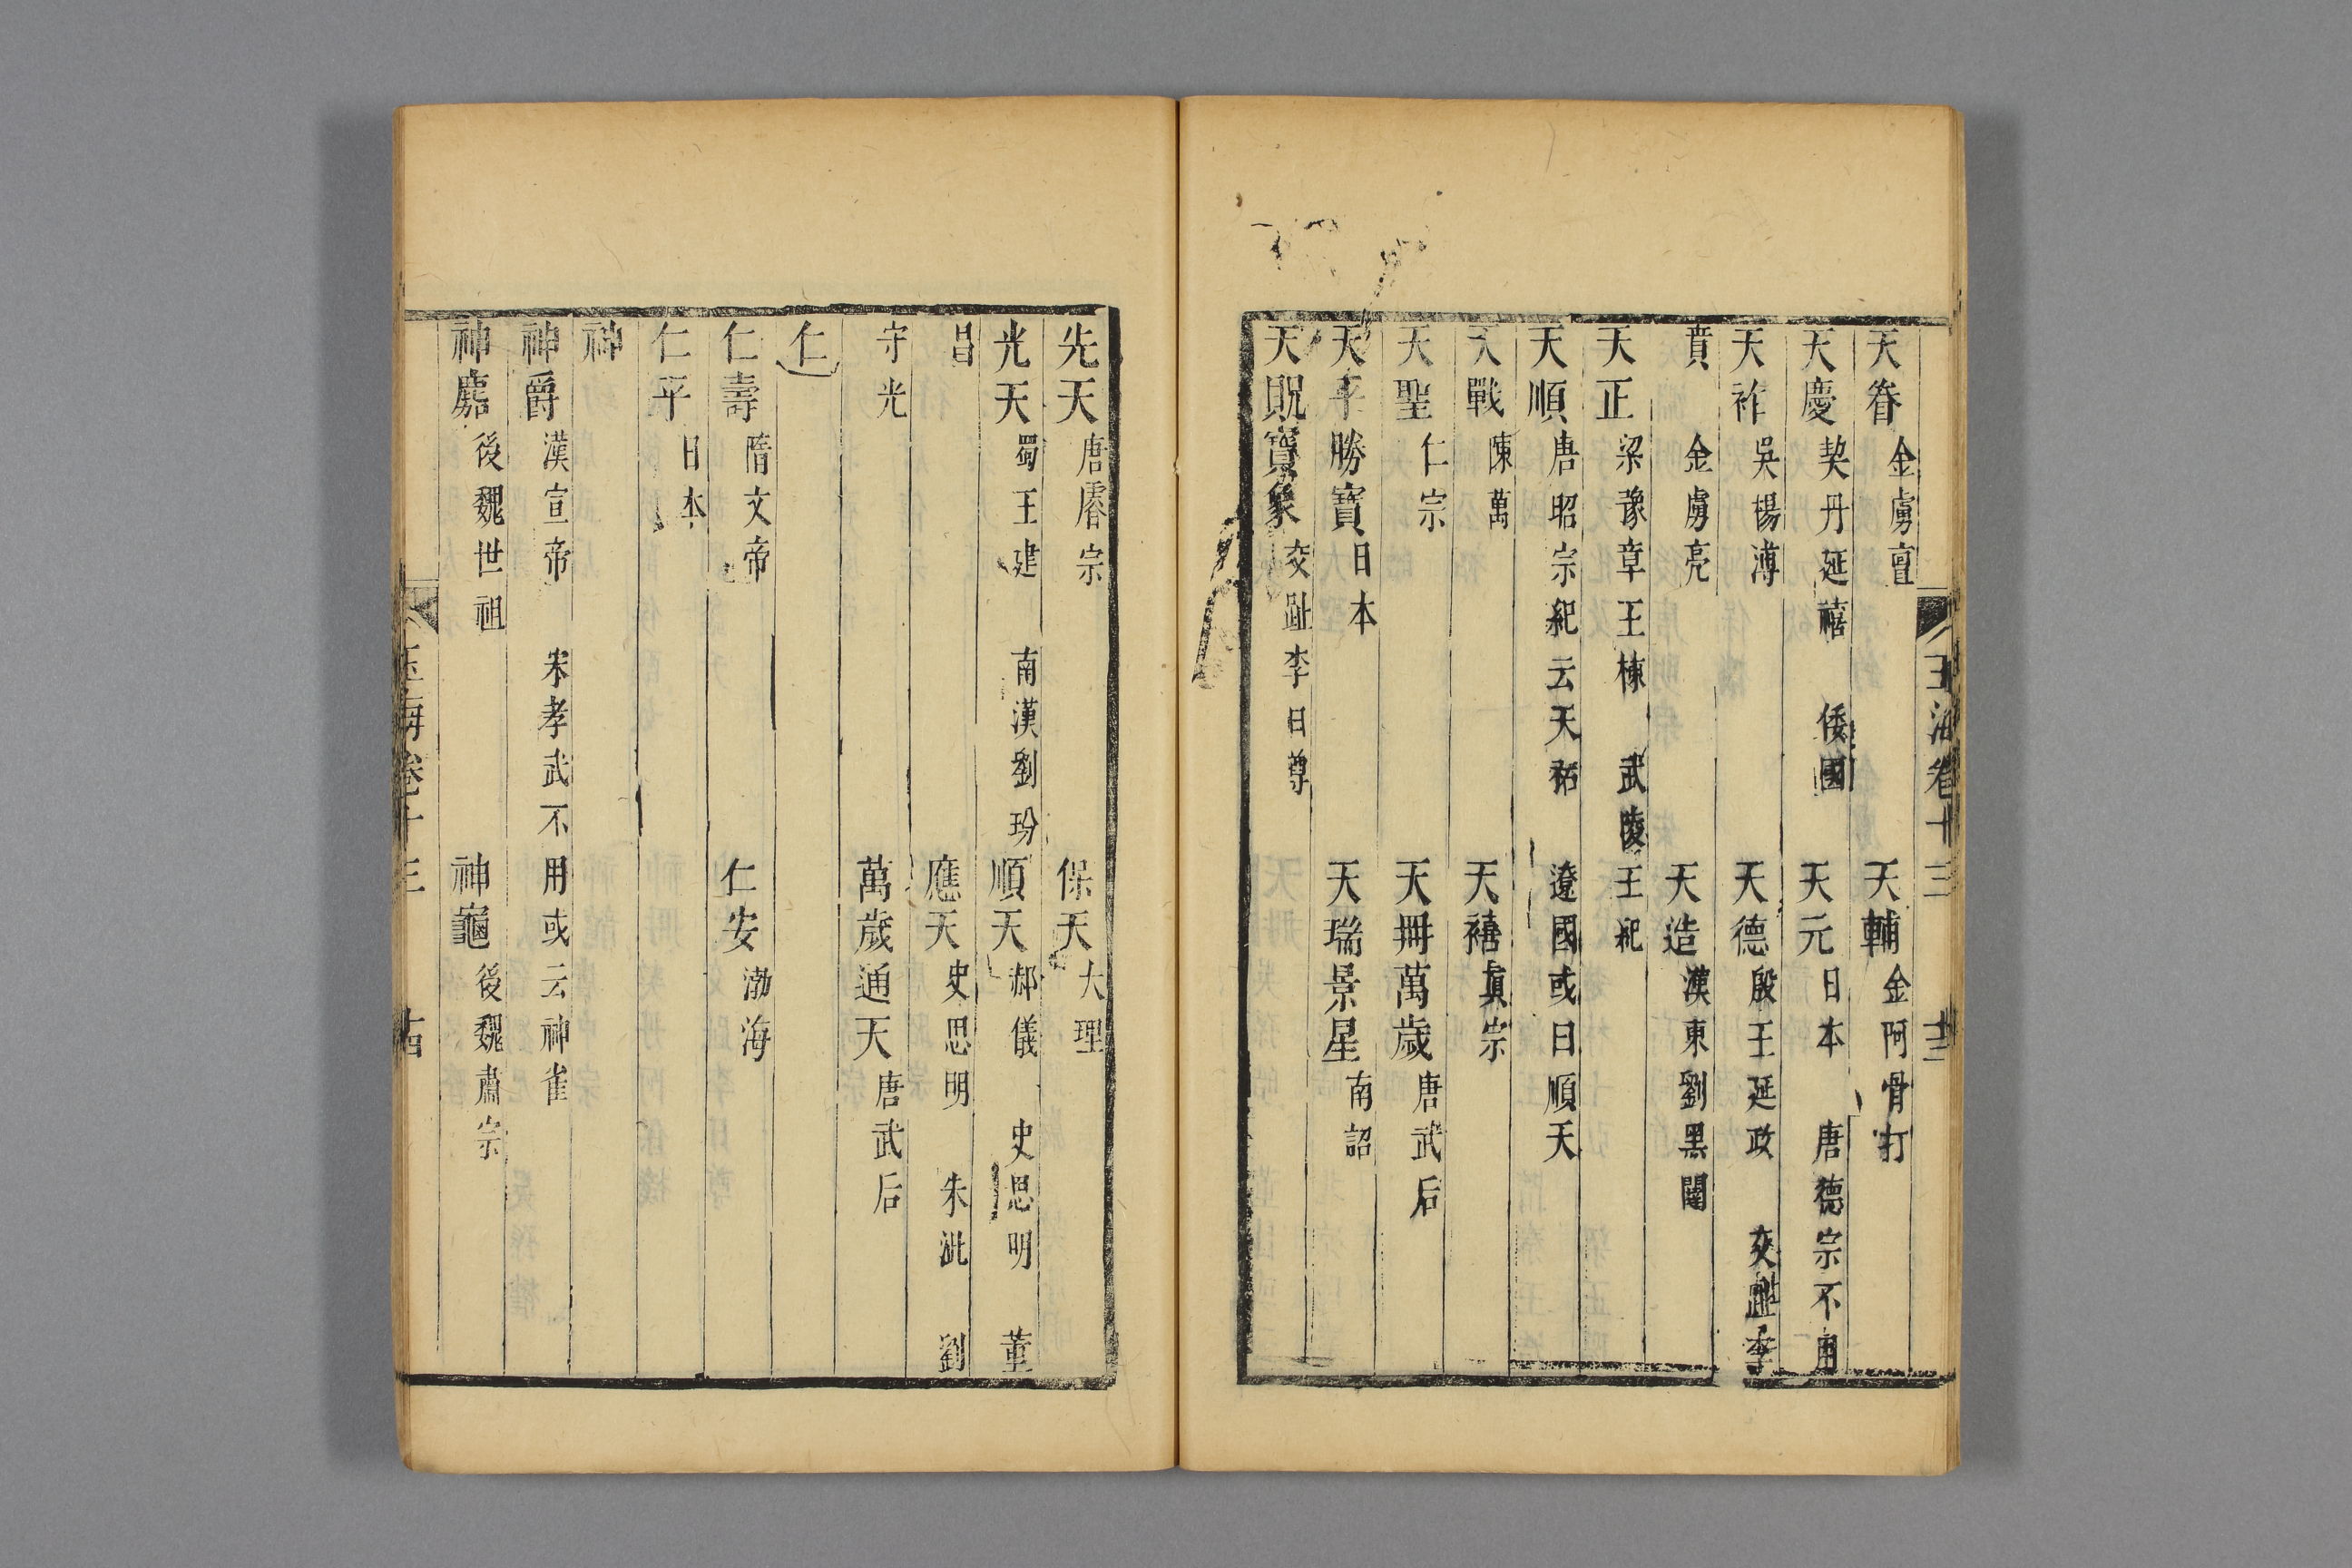 玉海卷十三 十三
天眷金虜亶 天輔金阿骨打
天慶契丹延禧 倭國 天元日本 唐德宗不用
天祚吳楊溥 天德殷王延政 交趾李
賁 金虜亮 天造漢東劉黑闥
天正梁豫章王棟 武陵王紀
天順唐昭宗紀云天祐 遼國或曰順天
天戰陳萬 天禧真宗
天聖仁宗 天冊萬歲唐武后
天平勝寶日本 天瑞景星南詔
天貺寶象交趾李日尊
先天唐睿宗 保天大理
光天蜀王建 南漢劉玢 順天郝儀 史思明 董
昌 應天史思明 朱泚 劉
守光 萬歲通天唐武后
仁
仁壽隋文帝 仁安渤海
仁平日本
神
神爵漢宣帝 宋孝武不用或云神雀
神䴥後魏世祖 神龜後魏肅宗
玉海卷十三 十四